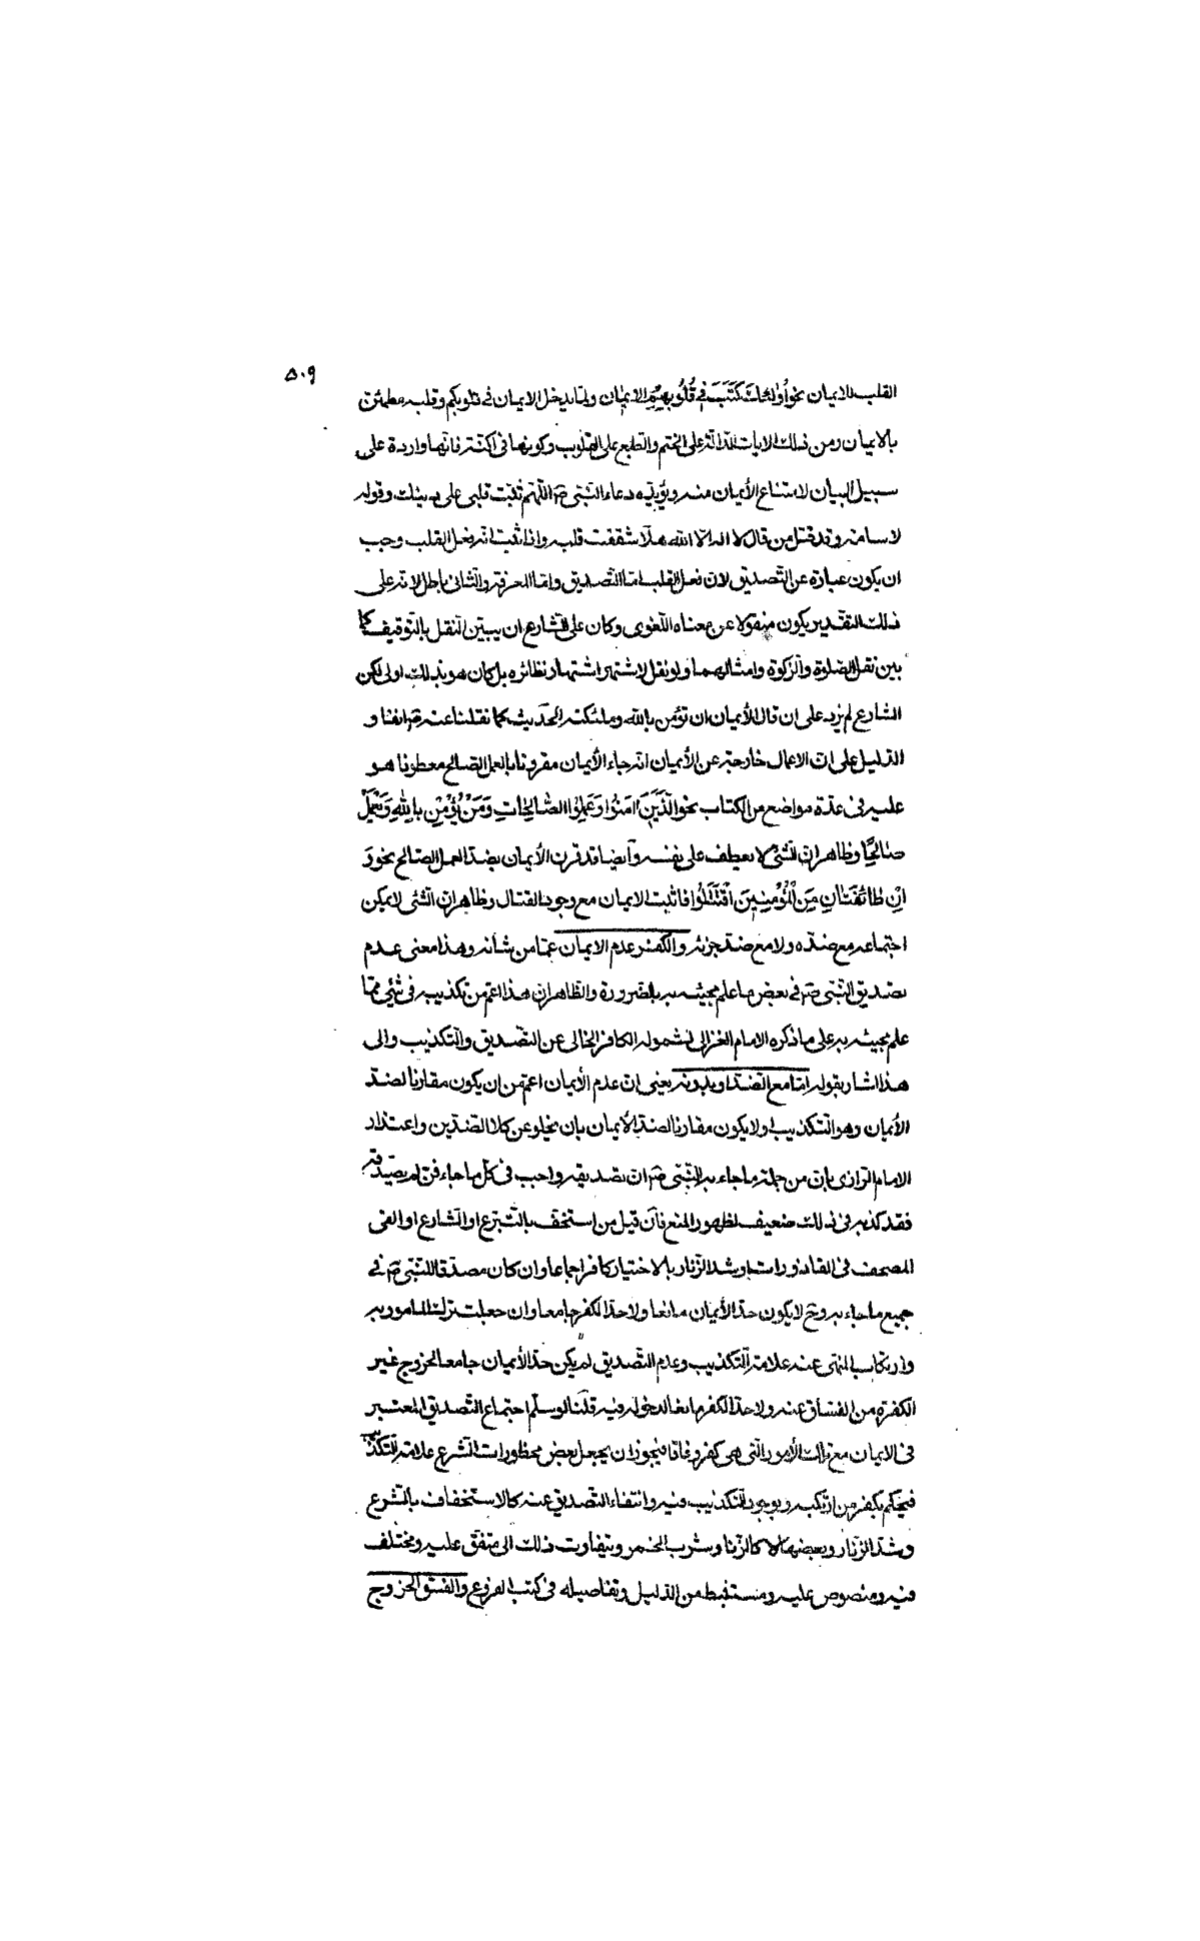 ٥٠٩
القلب للايمان نحو أُولٰئِكَ كَتَبَ فِي قُلُوبِهِمُ الْإِيمٰانَ ولمّا يدخل الايمان فى قلوبكم وقلبه مطمئن
بالايمان ومن ذلك الايات الدّالّة على الختم والطبع على القلوب وكونها فى اكنّة فانّها واردة على
سبيل البيان لامتناع الأيمان منه ويؤيّده دعاء النّبىّ صم اللّهمّ ثبّت قلبى على دينك وقوله
لاسامة وقد قتل من قال لا اله الّا الله هلّا شققت قلبه واذا ثبت انّه فعل القلب وجب
ان يكون عبارة عن التّصديق لانّ فعل القلب امّا التّصديق وامّا المعرفة والثّانى باطل لانّه على
ذلك التقدير يكون منقولا عن معناه اللّغوى وكان على الشّارع ان يبيّن النّقل بالتّوقيف كما
بين نقل الصّلوة والزّكوة وامثالهما ولو نقل لاشتهر اشتهار نظائره بل كان هو بذلك اولى لكن
الشارع لم يزد على ان قال الأيمان ان تؤمن بالله وملئكته الحديث كما نقلنا عنه صم انفا و
الدّليل على انّ الاعمال خارجة عن الأيمان انّه جاء الأيمان مقرونا بالعمل الصّالح معطوفا هو
عليه فى عدّة مواضع من الكتاب نحو الَّذِينَ اٰمَنُوا وَعَمِلُوا الصّٰالِحٰاتِ وَمَنْ يُؤْمِنْ بِاللّٰهِ وَيَعْمَلْ
صٰالِحًا وظاهر انّ الشّئ لا يعطف على نفسه وايضا قد قرن الأيمان بضدّ العمل الصّالح نحو وَ
اِنْ طٰائِفَتٰانِ مِنَ الْمُؤْمِنِينَ اقْتَتَلُوا فاثبت الايمان مع وجود القتال وظاهر انّ الشّئ لا يمكن
اجتماعه مع ضدّه ولا مع ضدّ جزئه والكفر عدم الايمان عمّا من شأنه وهذا معنى عدم
تصديق النّبىّ صم فى بعض ما علم مجيئه به بالضّرورة والظاهر انّ هذا اعمّ من تكذيبه فى شئ ممّا
علم مجيئه به على ما ذكره الامام الغزالى لشموله الكافر الخالى عن التّصديق والتّكذيب والى
هذا اشار بقوله امّا مع الضّدّ او بدونه يعنى انّ عدم الأيمان اعمّ من ان يكون مقارنا لضدّ
الأيمان وهو التّكذيب او لا يكون مقارنا لضدّ الأيمان بان يخلو عن كلا الضّدّين واعتذار
الامام الرّازى بانّ من جملة ما جاء به النّبىّ صم انّ تصديقه واجب فى كلّ ما جاء به فمن لم يصدّقه
فقد كذبه فى ذلك ضعيف لظهور المنع فان قيل من استخفّ بالشّرع او الشّارع او القى
المصحف فى القاذورات او شدّ الزّنّار بالاختيار كافر اجماعا وان كان مصدّقا للنّبىّ صم فى
جميع ما جاء به وح لا يكون حدّ الأيمان مانعا ولا حدّ الكفر جامعا وان جعلت ترك المأمور به
وارتكاب المنهى عنه علامة التّكذيب وعدم التّصديق لم يكن حدّ الأيمان جامعا لخروج غير
الكفرة من الفسّاق عنه ولا حدّ الكفر مانعا لدخوله فيه قلنا لو سلّم اجتماع التّصديق المعتبر
فى الايمان مع تلك الأمور الّتى هى كفر وفاقا فيجوز ان يجعل بعض محظورات الشّرع علامة التّكذيب
فيحكم بكفر من ارتكبه وبوجود التّكذيب فيه وانتفاء التّصديق عنه كالاستخفاف بالشّرع
وشدّ الزّنّار وبعضها لا كالزّنا وشرب الخمر ويتفاوت ذلك الى متفق عليه ومختلف
فيه ومنصوص عليه ومستنبط من الدّليل وتفاصيله فى كتب الفروع والفسق الخروج